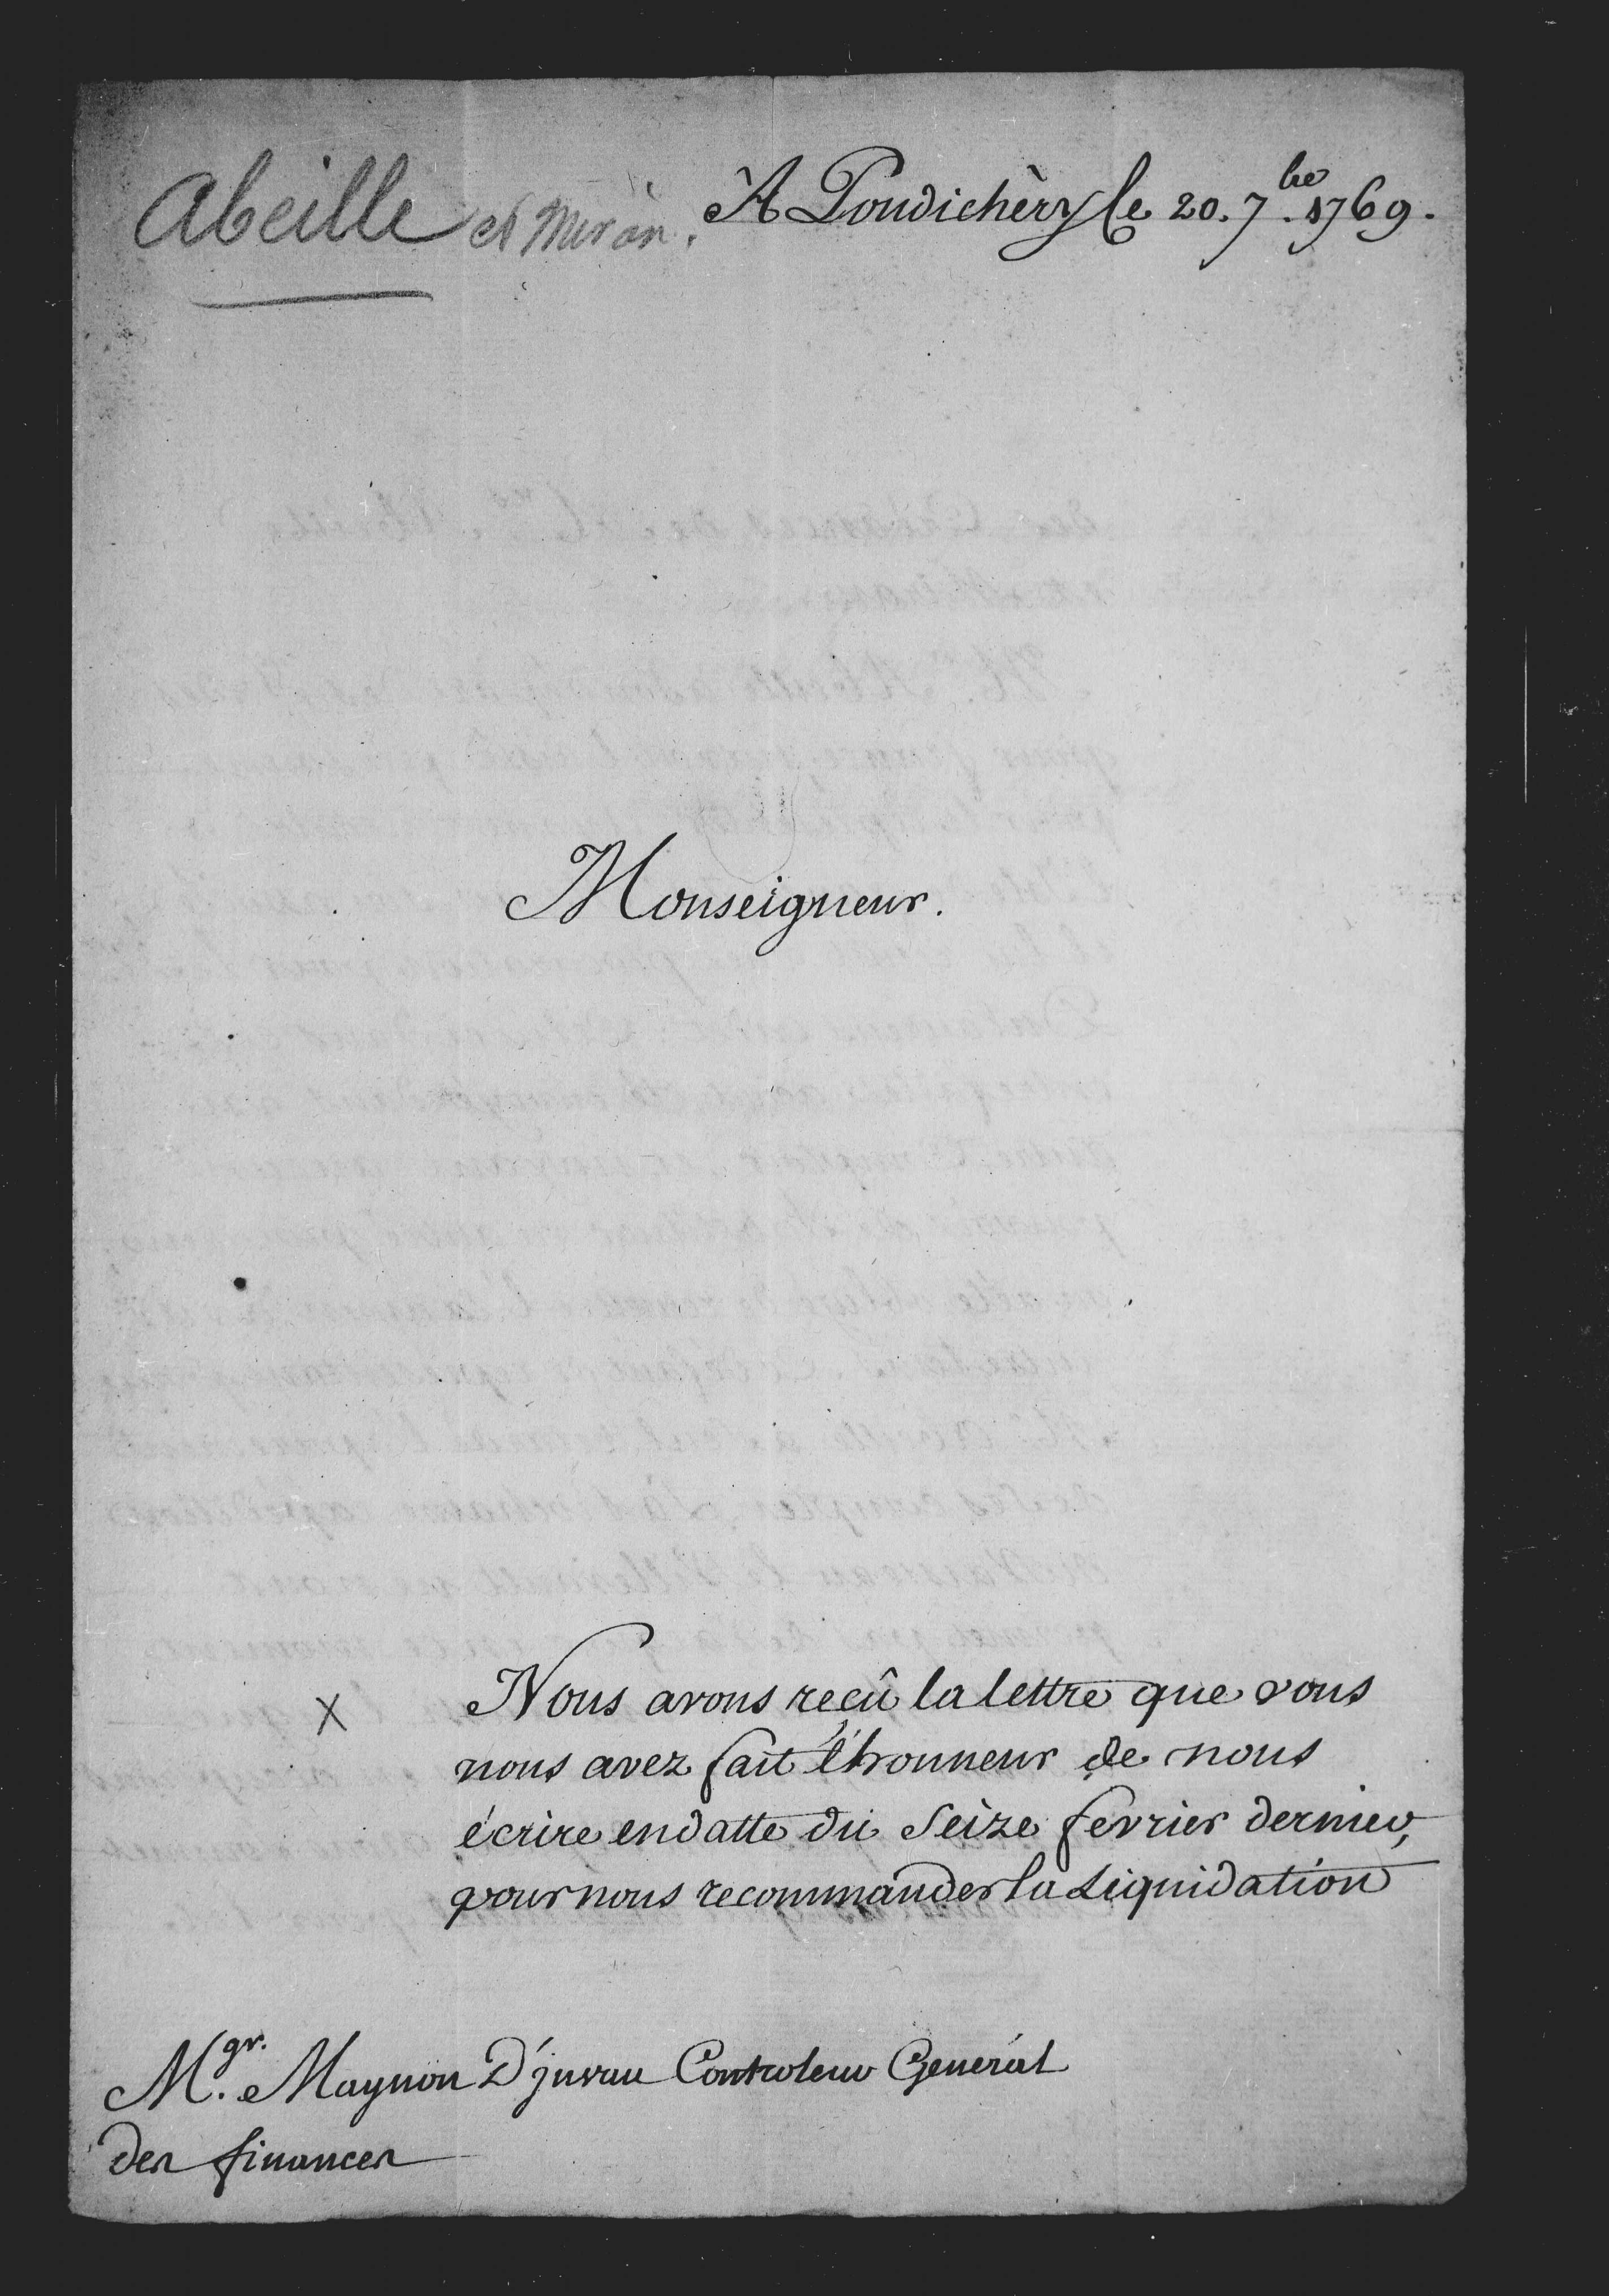 Abeille et Miran.
À Pondichèry le 20. 7.bre 1769.
Monseigneur.
X
Nous avons reçû la lettre que vous
nous avez fait l'honneur de nous
écrire en datte du Seize fevrier dernier,
pour nous recommander la Liquidation
M.gr. Maynon D'juvau Controleur General
des finances